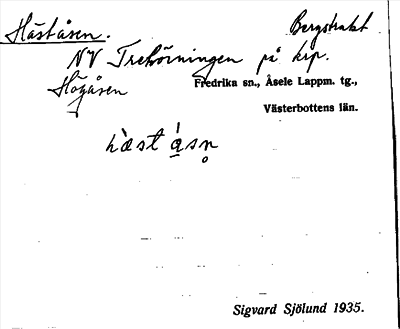 Häståsen. Bergstrakt
NV Trehörningen på krp.
Högåsen Fredrika sn., Åsele Lappm. tg.,
Västerbottens län.
hæ̀st ásn̥
Sigvard Sjölund 1935.